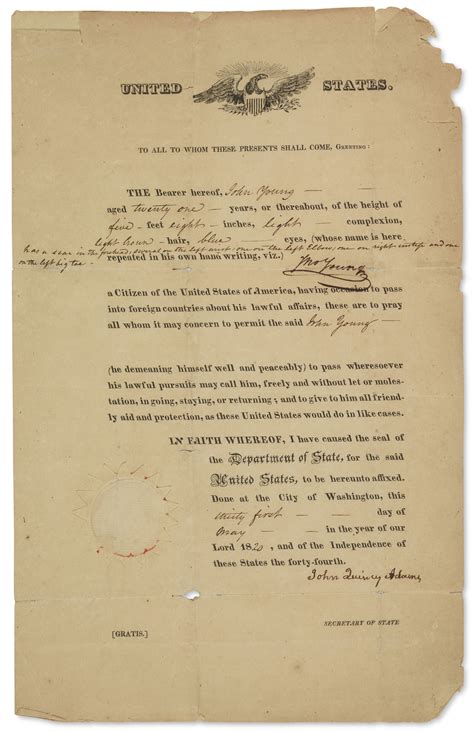 UNITED STATES.
TO ALL TO WHOM THESE PRESENTS SHALL COME, GREETING:
THE Bearer hereof, John Young —
aged twenty one — years, or thereabout, of the height
of five - feet eight - inches, light - complexion,
light brown - hair, blue eyes, (whose name is here
has a scar in the forehead, several on the left wrist, one on the left elbow, one on right instep and one
on the left big toe - repeated in his own hand writing, viz.)
Jno Young
a Citizen of the United States of America, having occasion to pass
into foreign countries about his lawful affairs, these are to pray
all whom it may concern to permit the said John Young —
(he demeaning himself well and peaceably) to pass wheresoever
his lawful pursuits may call him, freely and without let or moles-
tation, in going, staying, or returning; and to give to him all friend-
ly aid and protection, as these United States would do in like cases.
IN FAITH WHEREOF, I have caused the seal of
the Department of State, for the said
United States, to be hereunto affixed.
Done at the City of Washington, this
thirty first — day of
May — in the year of our
Lord 1820, and of the Independence of
these States the forty-fourth.
John Quincy Adams
SECRETARY OF STATE
[GRATIS.]